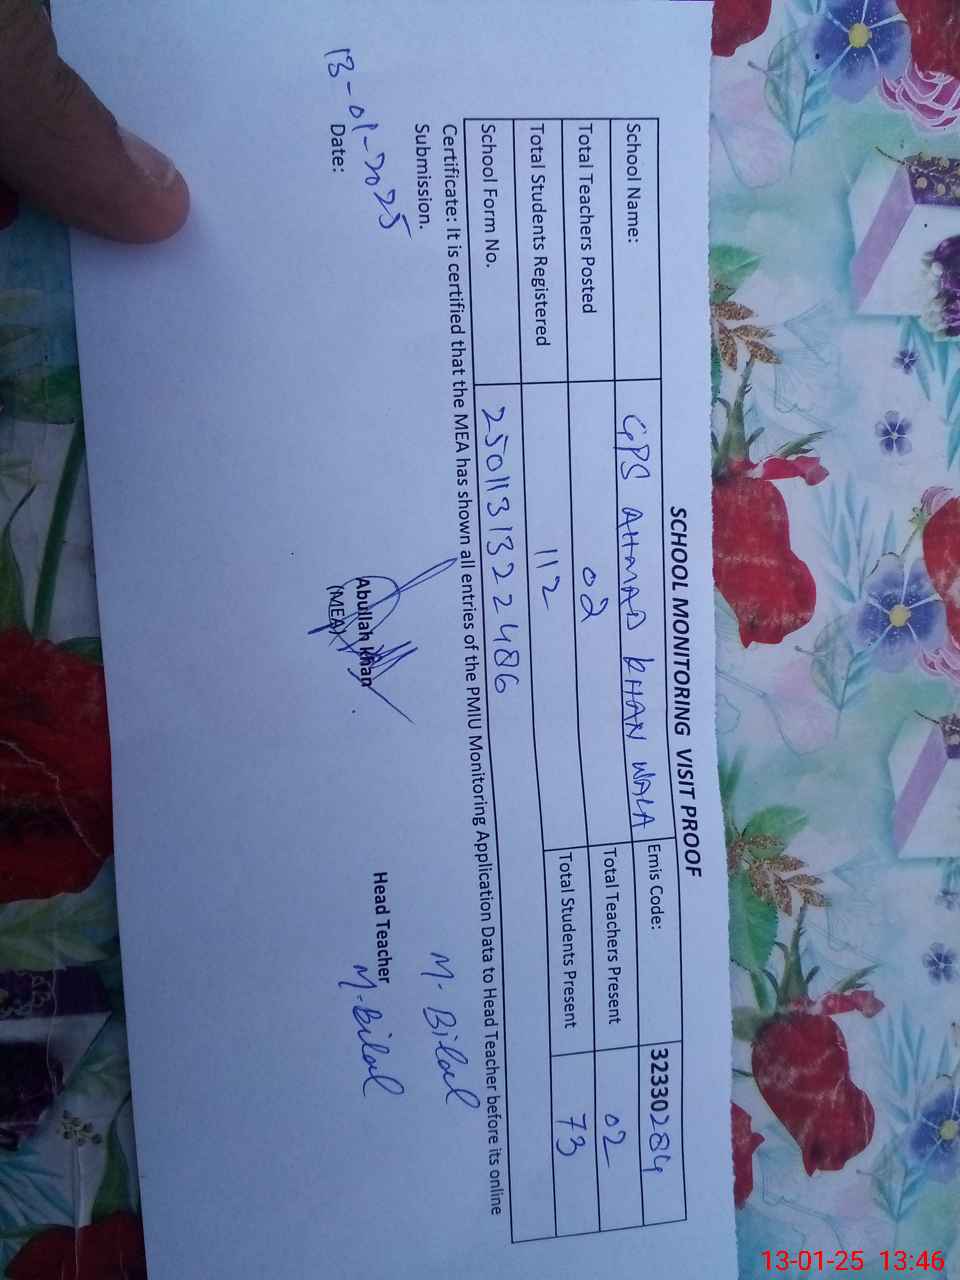 SCHOOL MONITORING VISIT PROOF
School Name: GPS AHMAD KHAN WALA Emis Code: 32330284
Total Teachers Posted 02 Total Teachers Present 02
Total Students Registered 112 Total Students Present 73
School Form No. 2501131322486
Certificate: It is certified that the MEA has shown all entries of the PMIU Monitoring Application Data to Head Teacher before its online
Submission.
M. Bilal
13-01-2025
Date:
Abullah khan
(MEA)
Head Teacher
M. Bilal
13-01-25 13:46